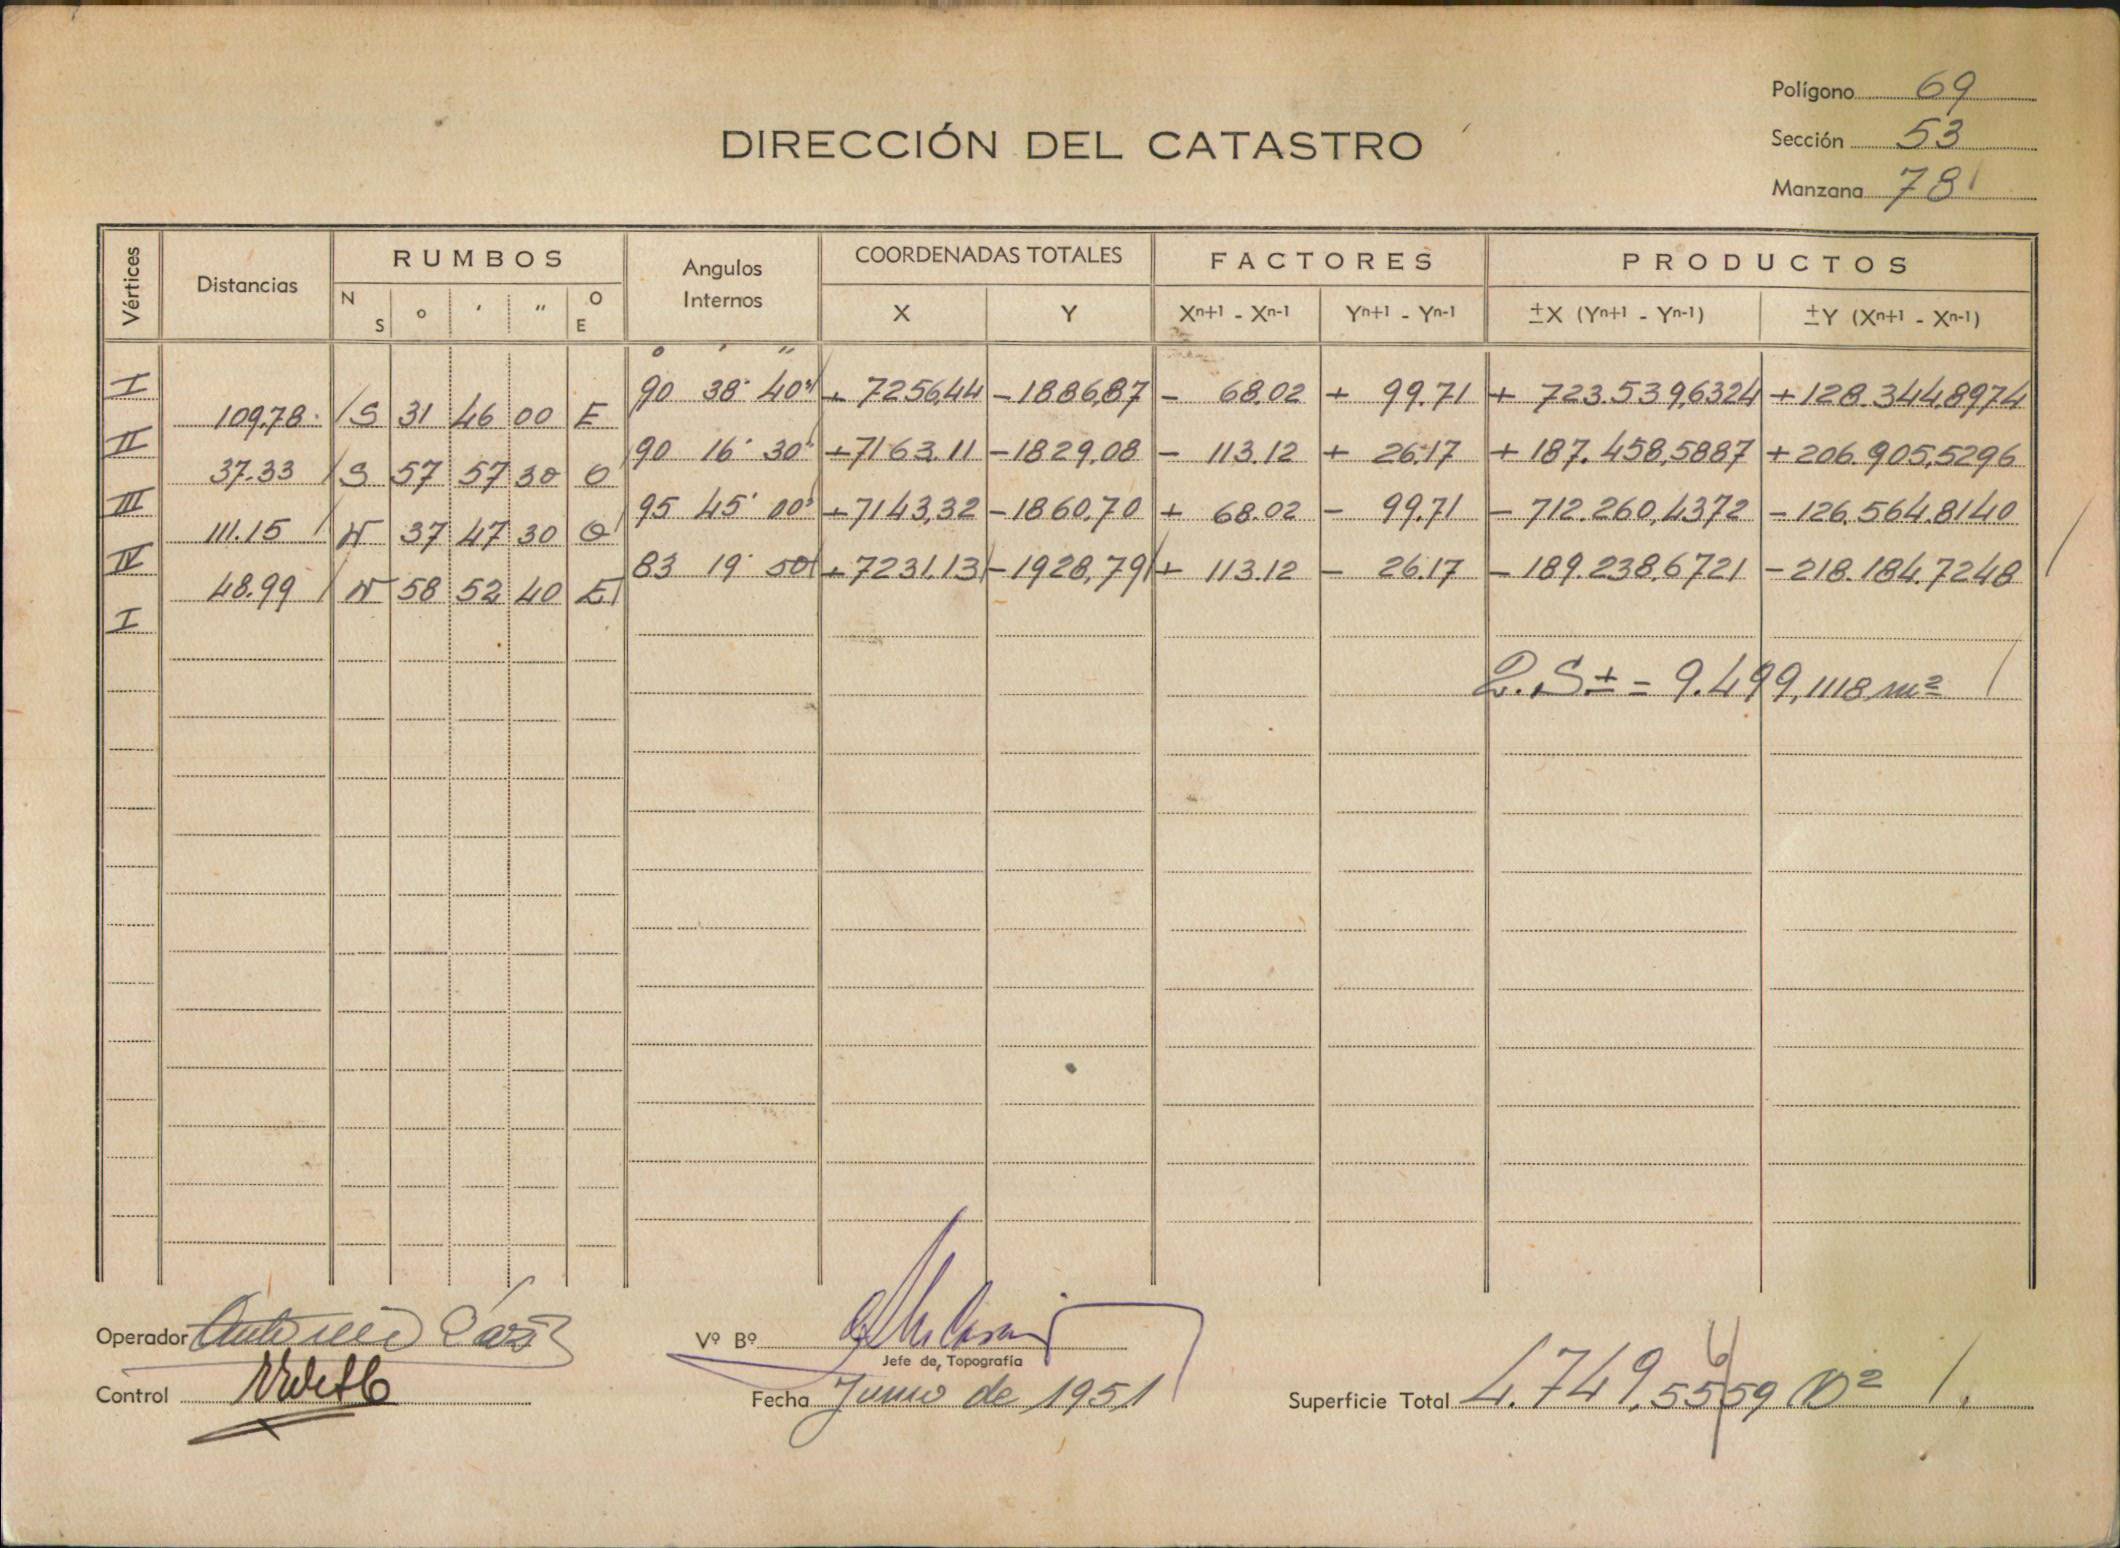 Polígono 69
DIRECCIÓN DEL CATASTRO
Sección 53
Manzana 78
Vértices Distancias RUMBOS Angulos Internos COORDENADAS TOTALES FACTORES PRODUCTOS
N S o ' " O E X Y Xn+1 - Xn-1 Yn+1 - Yn-1 ±X (Yn+1 - Yn-1) ±Y (Xn+1 - Xn-1)
o ' "
I 90 38' 40" + 7256,44 -1886,87 - 68.02 + 99.71 + 723.539,6324 +128.344,8974
109.78 S 31 46 00 E
II 90 16' 30" +7163.11 -1829.08 - 113.12 + 26.17 + 187.458,5887 +206.905,5296
37.33 S 57 57 30 O
III 95 45' 00" +7143,32 -1860,70 + 68.02 - 99.71 - 712.260,4372 -126.564.8140
111.15 N 37 47 30 O
IV 83 19' 50" +7231.13 -1928,79 + 113.12 - 26.17 - 189.238,6721 -218.184.7248
48.99 N 58 52 40 E
I
2.S ± = 9.499,1118 m²
Operador Antonio
Vº Bº
Jefe de Topografía
Control
Fecha Junio de 1951
Superficie Total 4.749,5559 m²